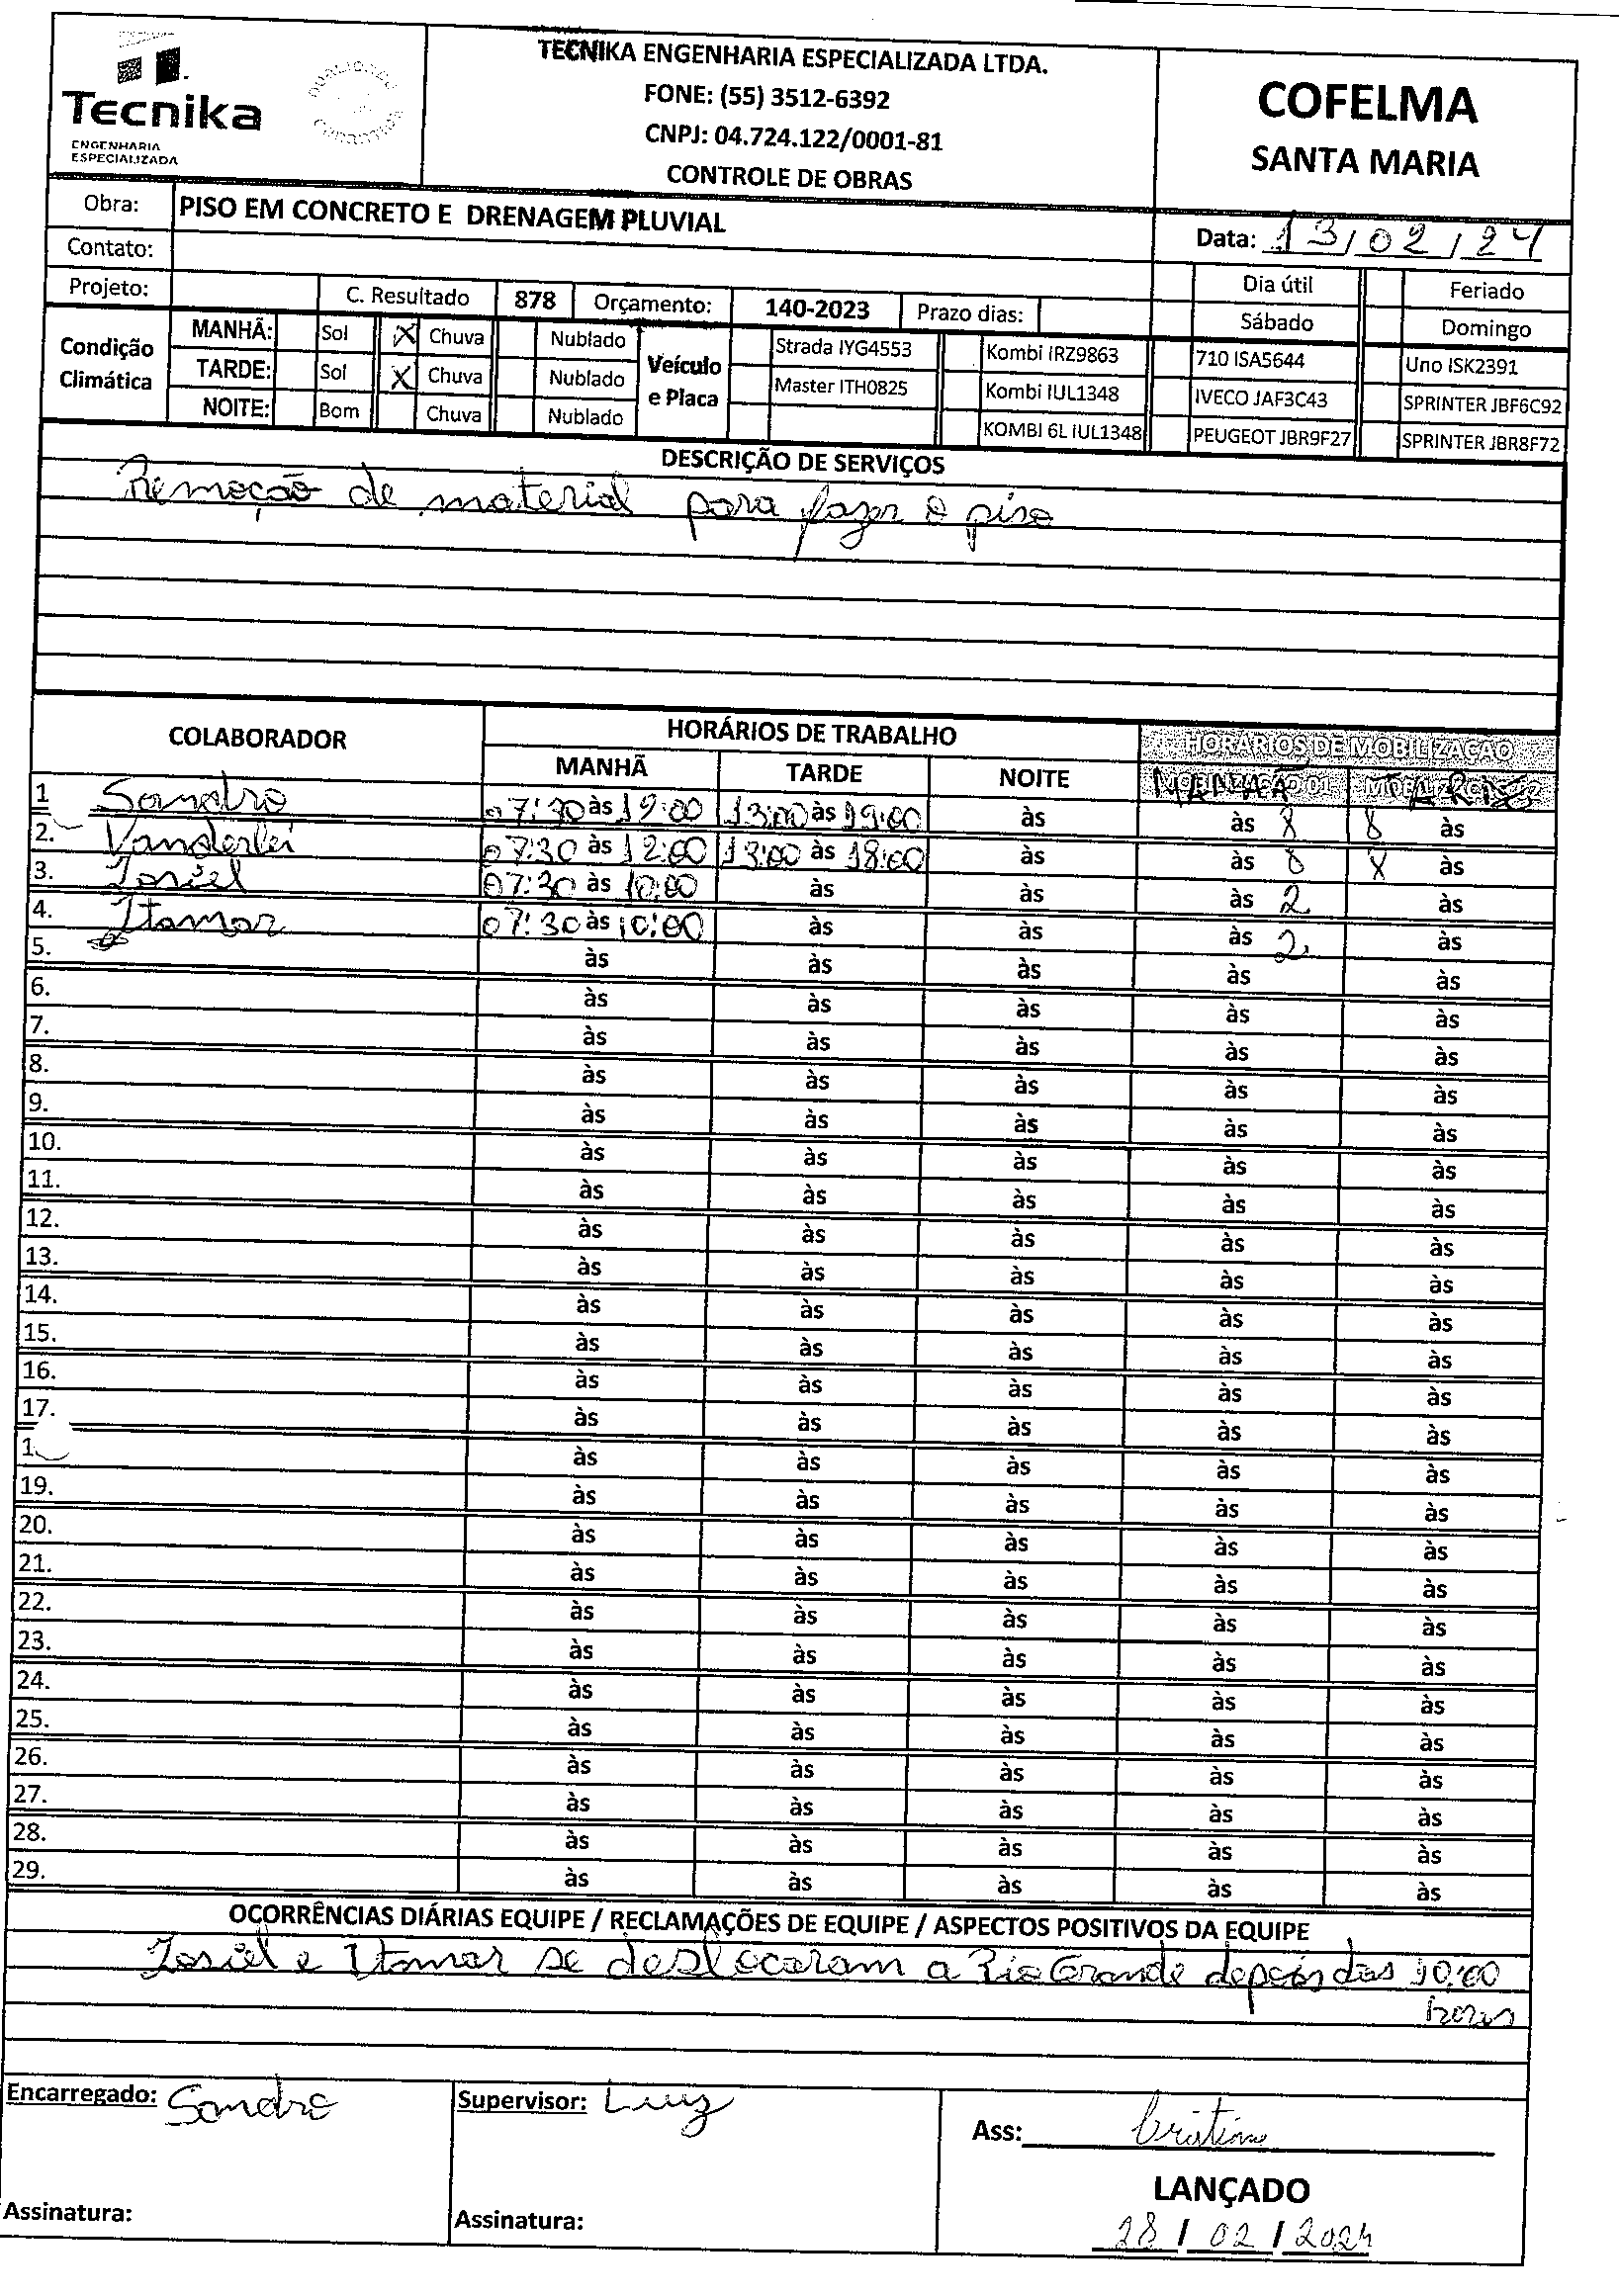 Tecnika
ENGENHARIA
ESPECIALIZADA
QUALIDADE
TECNIKA ENGENHARIA ESPECIALIZADA LTDA.
FONE: (55) 3512-6392
CNPJ: 04.724.122/0001-81
CONTROLE DE OBRAS
COFELMA
SANTA MARIA
Obra: PISO EM CONCRETO E DRENAGEM PLUVIAL
Data: 13/02/24
Contato:
Dia útil Feriado
Projeto: C. Resultado 878 Orçamento: 140-2023 Prazo dias: Sábado Domingo
Condição Climática MANHÃ: Sol X Chuva Nublado Veículo e Placa Strada IYG4553 Kombi IRZ9863 710 ISA5644 Uno ISK2391
TARDE: Sol X Chuva Nublado Master ITH0825 Kombi IUL1348 IVECO JAF3C43 SPRINTER JBF6C92
NOITE: Bom Chuva Nublado KOMBI 6L IUL1348 PEUGEOT JBR9F27 SPRINTER JBR8F72
DESCRIÇÃO DE SERVIÇOS
Remoção de material para fazer o piso
COLABORADOR HORÁRIOS DE TRABALHO HORÁRIOS DE MOBILIZAÇÃO
MANHÃ TARDE NOITE MANHÃ TARDE
1 Sandro 07:30 às 12:00 13:00 às 19:00 às às 8 8 às
2. Vanderlei 07:30 às 12:00 13:00 às 18:00 às às 8 8 às
3. Josiel 07:30 às 10:00 às às às 2 às
4. Itamar 07:30 às 10:00 às às às 2 às
5. às às às às às
6. às às às às às
7. às às às às às
8. às às às às às
9. às às às às às
10. às às às às às
11. às às às às às
12. às às às às às
13. às às às às às
14. às às às às às
15. às às às às às
16. às às às às às
17. às às às às às
1 às às às às às
19. às às às às às
20. às às às às às
21. às às às às às
22. às às às às às
23. às às às às às
24. às às às às às
25. às às às às às
26. às às às às às
27. às às às às às
28. às às às às às
29. às às às às às
OCORRÊNCIAS DIÁRIAS EQUIPE / RECLAMAÇÕES DE EQUIPE / ASPECTOS POSITIVOS DA EQUIPE
Josiel e Itamar se deslocaram a Rio Grande depois das 10:00
horas
Encarregado: Sandro Supervisor: Luiz
Ass: Cristine
LANÇADO
Assinatura: Assinatura:
28/02/2024